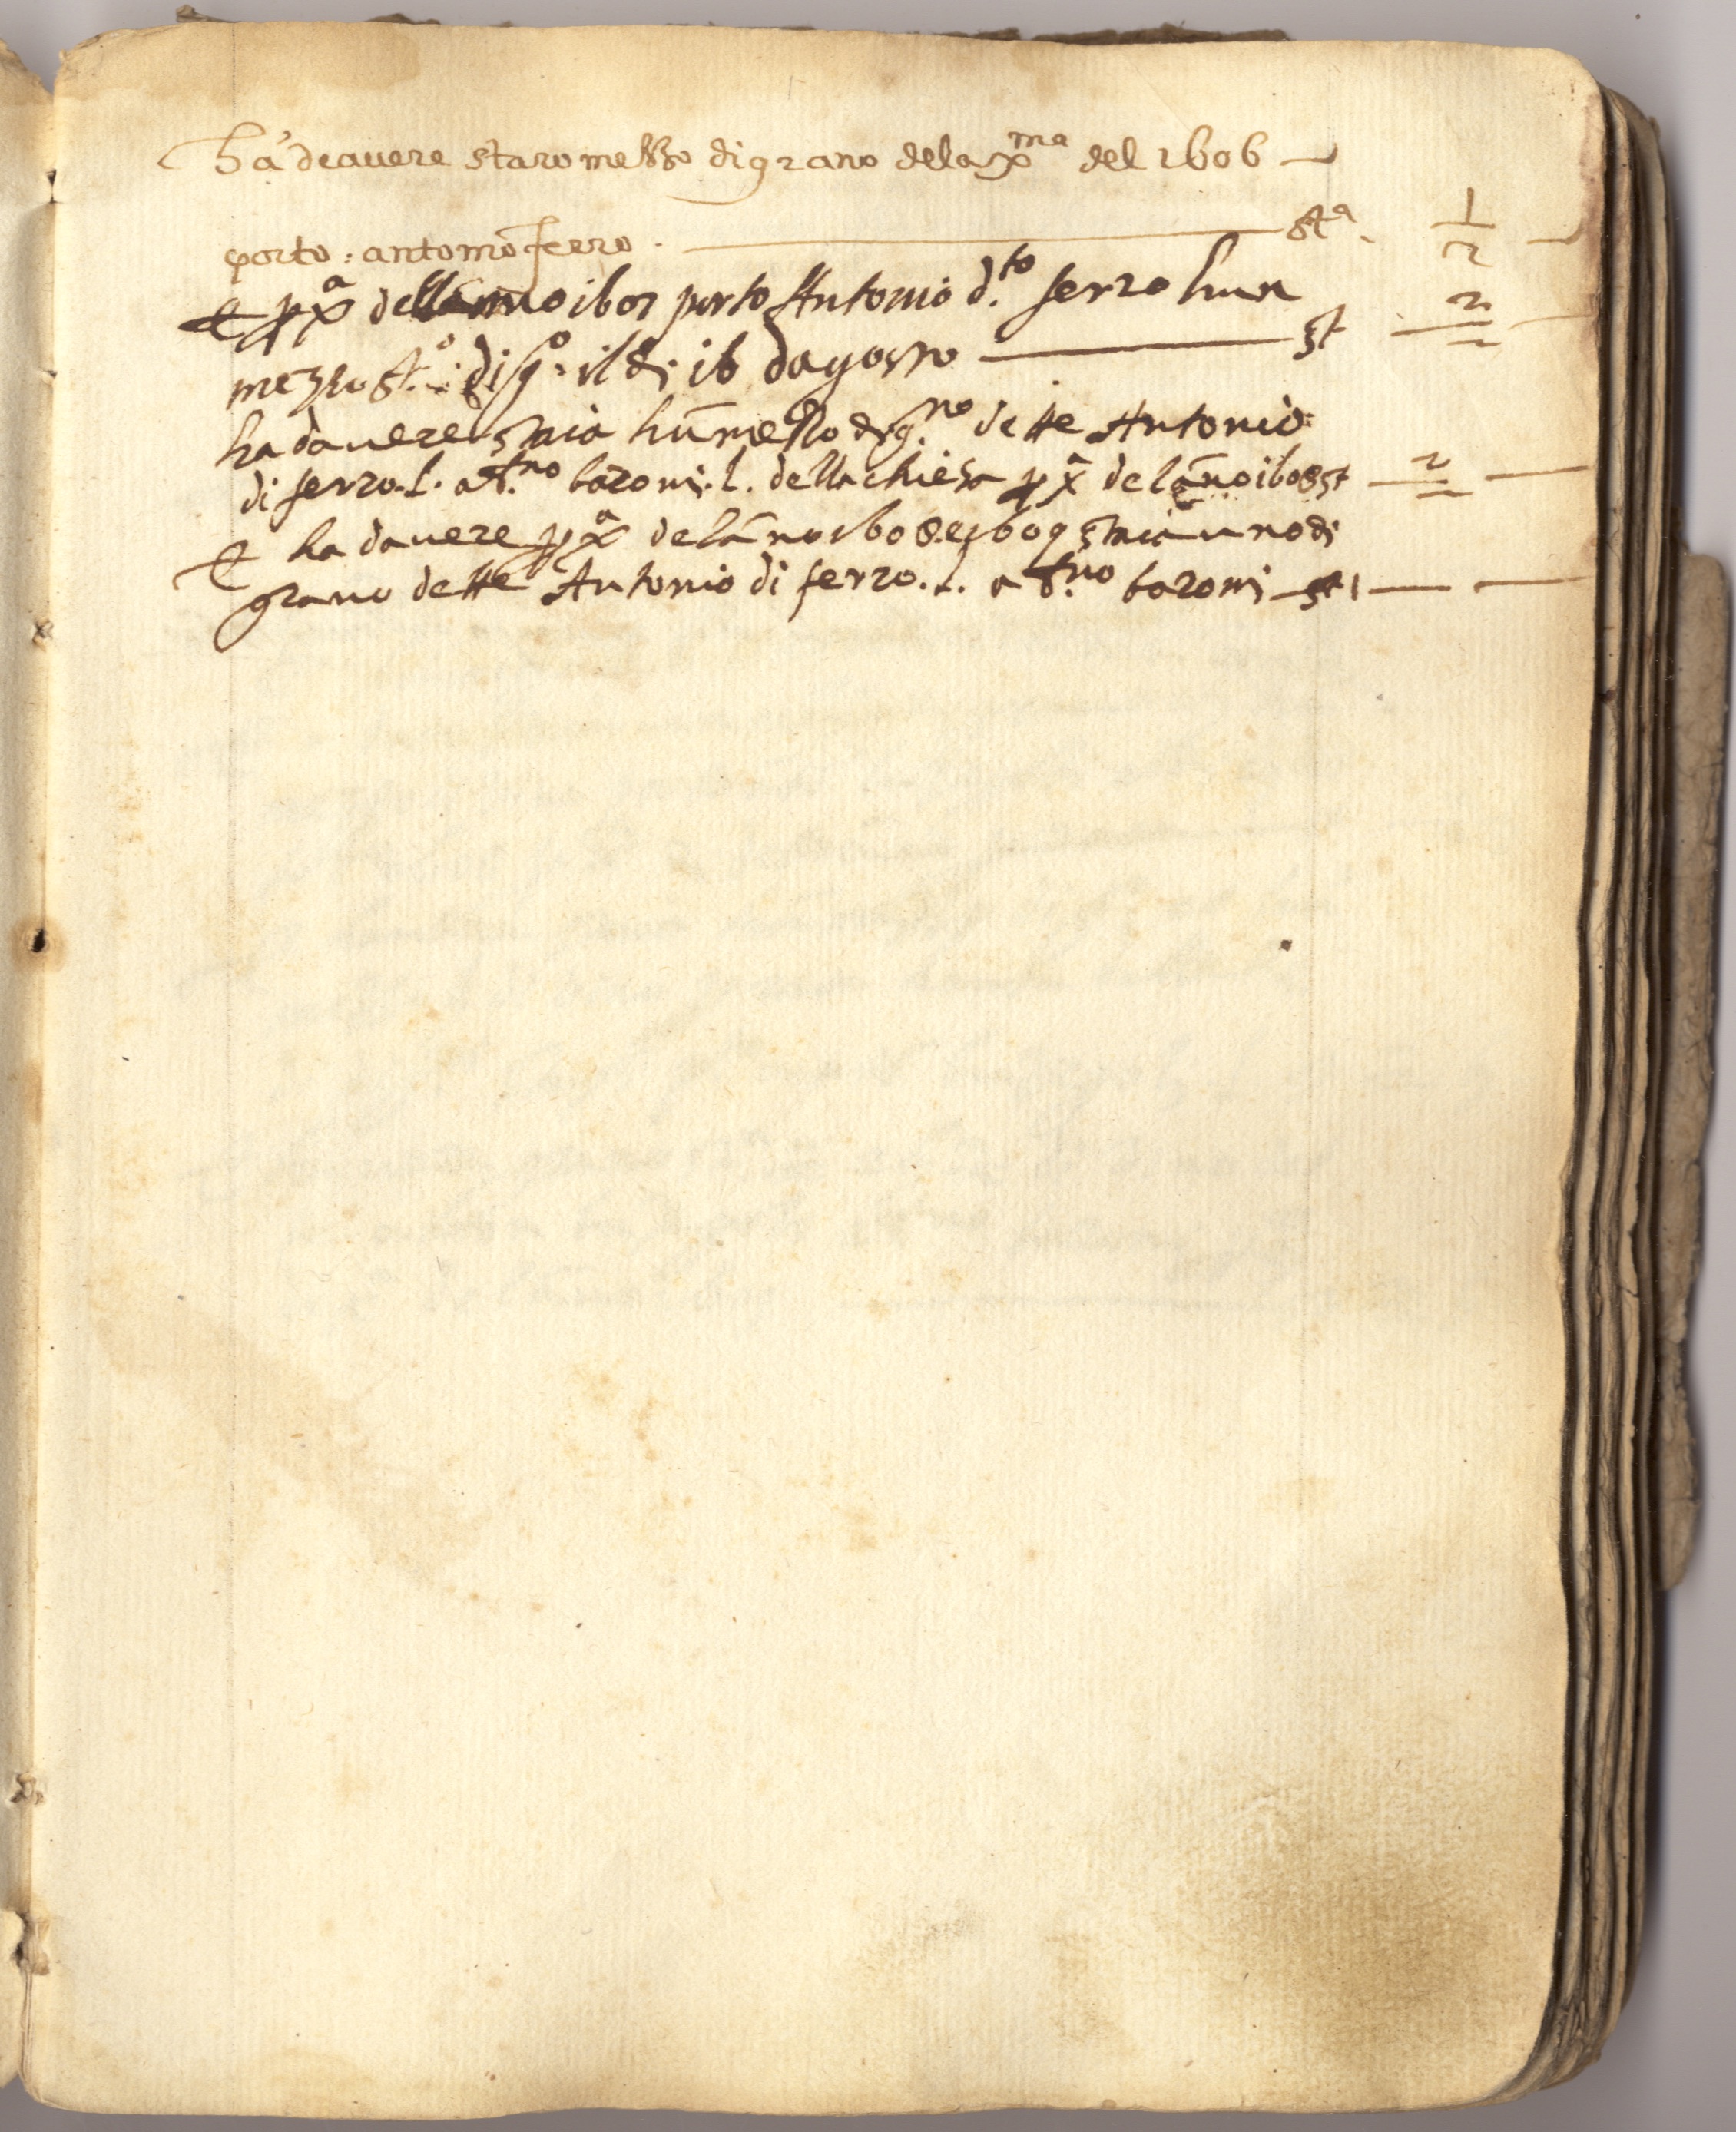 ha deauere staro mezzo di grano dela xma del 1606
porto : antonio ferro . sta. 1/2
E p xa dellanno 1607 porto Antonio d.to ferro hun
mezzo st.o di g.o il di 16 dagosto st 1/2
ha dauere staia hū mezzo di g.no dette Antonio
di ferro. l. a st.no baroni. l. della chiesa p xa de lāno 1608 st 1/2
E ha dauere p xa de lāno 1608 e 1609 staia uno di
grano dette Antonio di ferro. l. a st.no baroni st 1